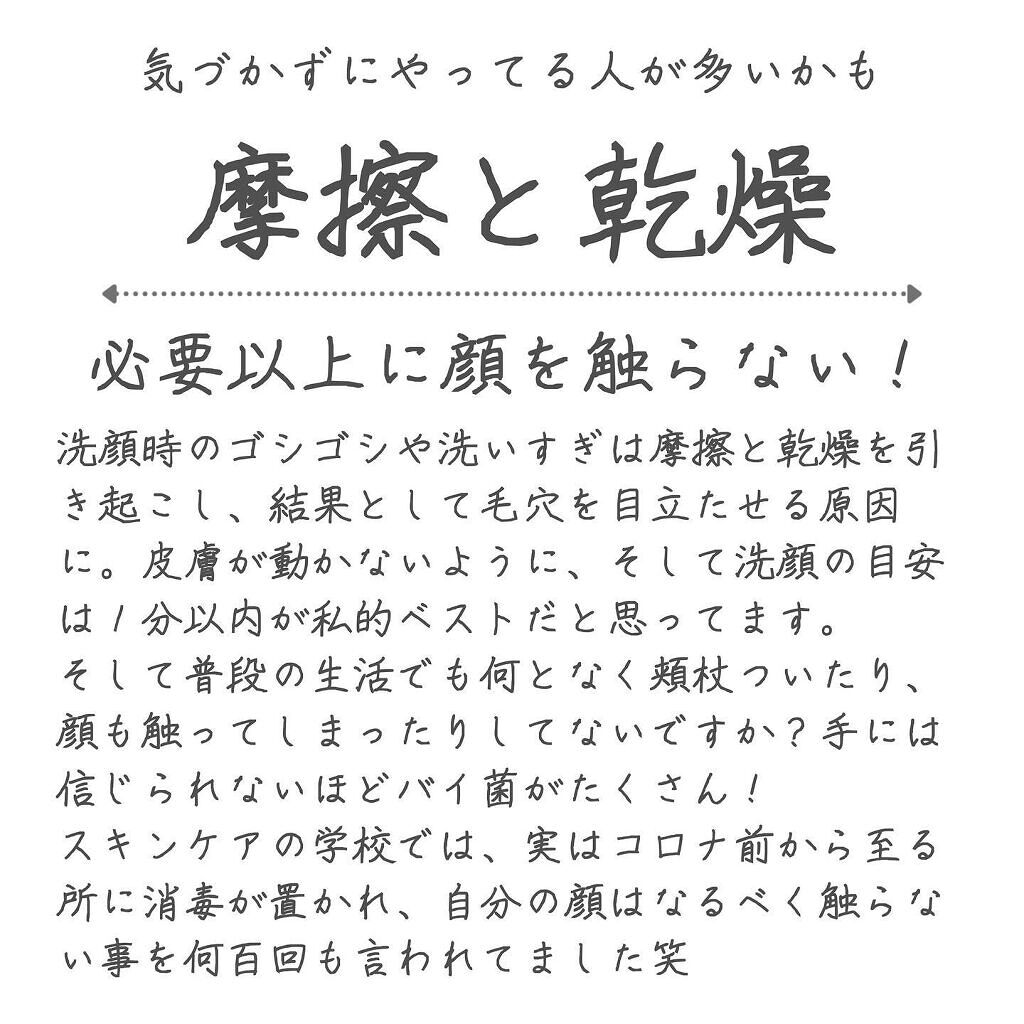 気づかずにやってる人が多いかも
摩擦と乾燥
必要以上に顔を触らない！
洗顔時のゴシゴシや洗いすぎは摩擦と乾燥を引
き起こし、結果として毛穴を目立たせる原因
に。皮膚が動かないように、そして洗顔の目安
は1分以内が私的ベストだと思ってます。
そして普段の生活でも何となく頬杖ついたり、
顔も触ってしまったりしてないですか？手には
信じられないほどバイ菌がたくさん！
スキンケアの学校では、実はコロナ前から至る
所に消毒が置かれ、自分の顔はなるべく触らな
い事を何百回も言われてました笑